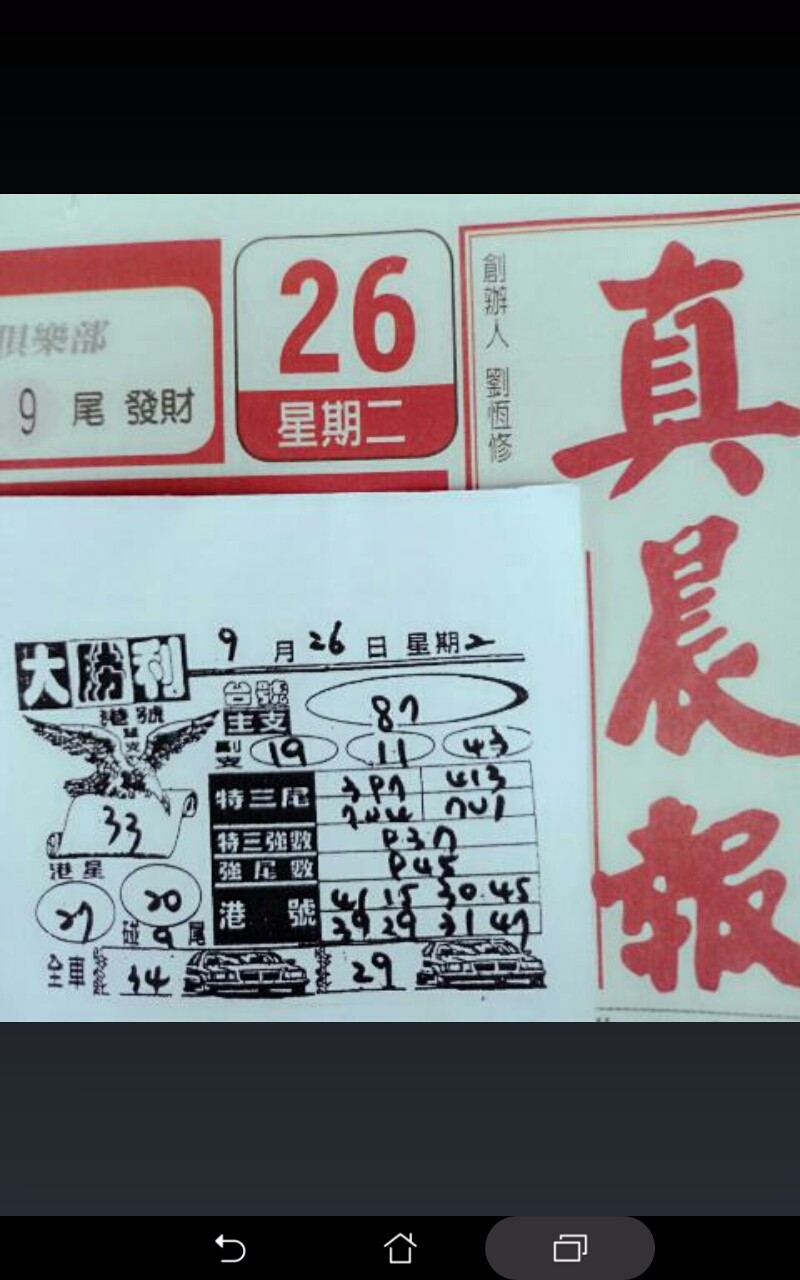 俱樂部
9 尾 發財
26
星期二
創辦人 劉恆修
真晨報
大勝利
9 月 26 日 星期 2
港號
單支
33
台號
主支
87
副支 19 11 43
特三尾 397 413
744 741
特三強數 837
強尾數 845
港星
27 20
碰 9 尾
港號 41 15 30 45
39 29 31 47
全車 34 29